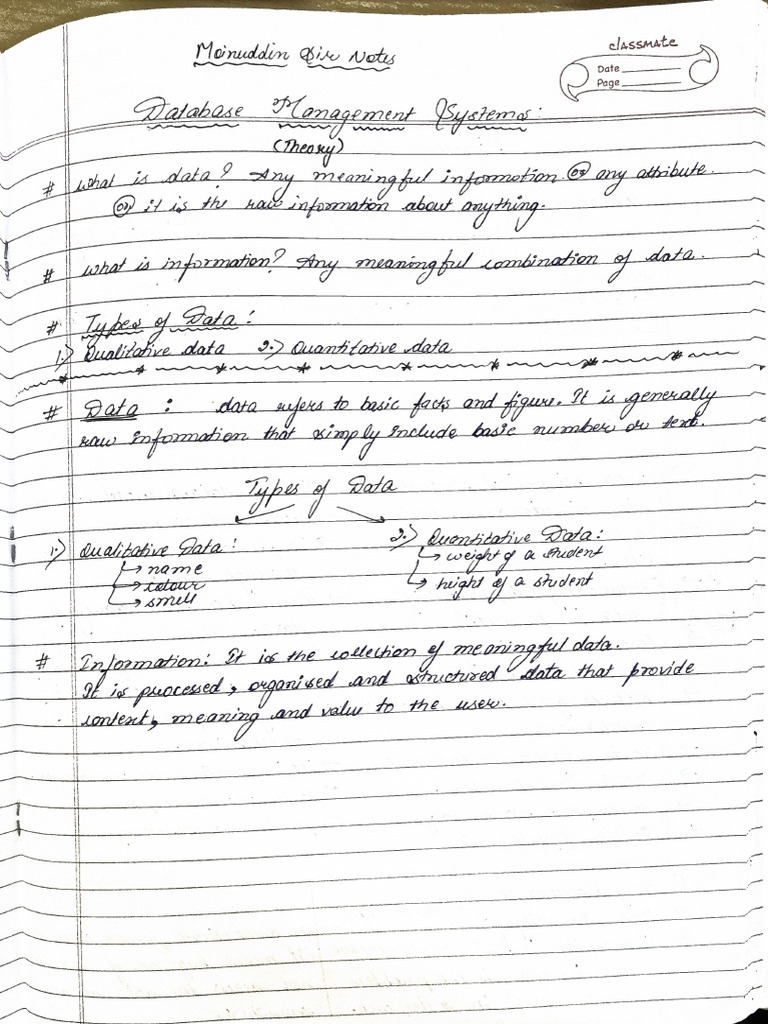 Moinuddin Sir Notes
classmate
Date
Page
Database Management Systems:
(Theory)
# what is data? Any meaningful information. or any attribute.
or it is the raw information about anything.
# what is information? Any meaningful combination of data.
# Types of Data:
1.) Qualitative data 2.) Quantitative data
# Data : data refers to basic facts and figure. It is generally
raw information that simply include basic number or text.
Types of Data
1.) Qualitative Data:
→ name
→ colour
→ smell
2.) Quantitative Data:
→ weight of a student
→ height of a student
# Information: It is the collection of meaningful data.
It is processed, organised and structured data that provide
context, meaning and value to the user.